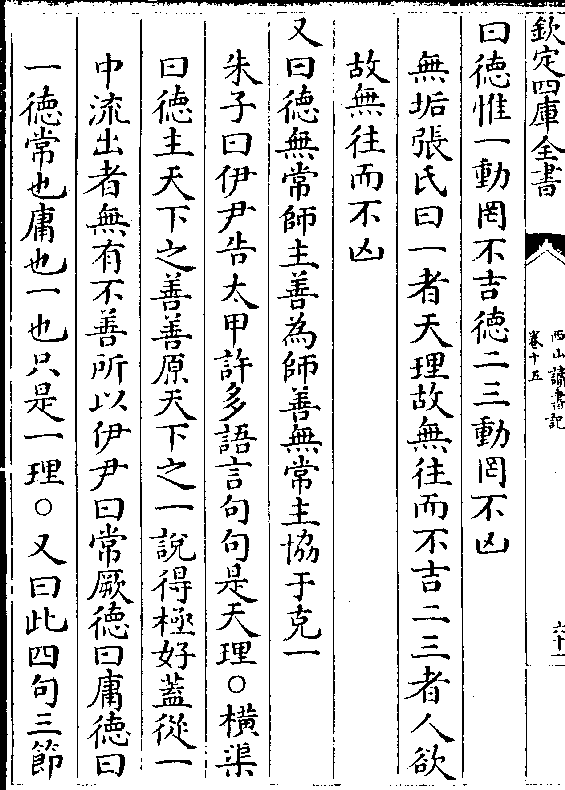 欽定四庫全書
西山讀書記
卷十五
六十二
曰德惟一動罔不吉德二三動罔不凶
無垢張氏曰一者天理故無往而不吉二三者人欲
故無往而不凶
又曰德無常師主善為師善無常主協于克一
朱子曰伊尹告太甲許多語言句句是天理○橫渠
曰德主天下之善善原天下之一說得極好蓋從一
中流出者無有不善所以伊尹曰常厥德曰庸德曰
一德常也庸也一也只是一理○又曰此四句三節